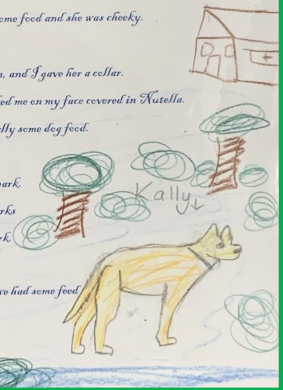 ome food and she was cheeky.
, and I gave her a collar.
ed me on my face covered in Nutella.
lly some dog food.
ark
Kally
rks
ark
ve had some feed